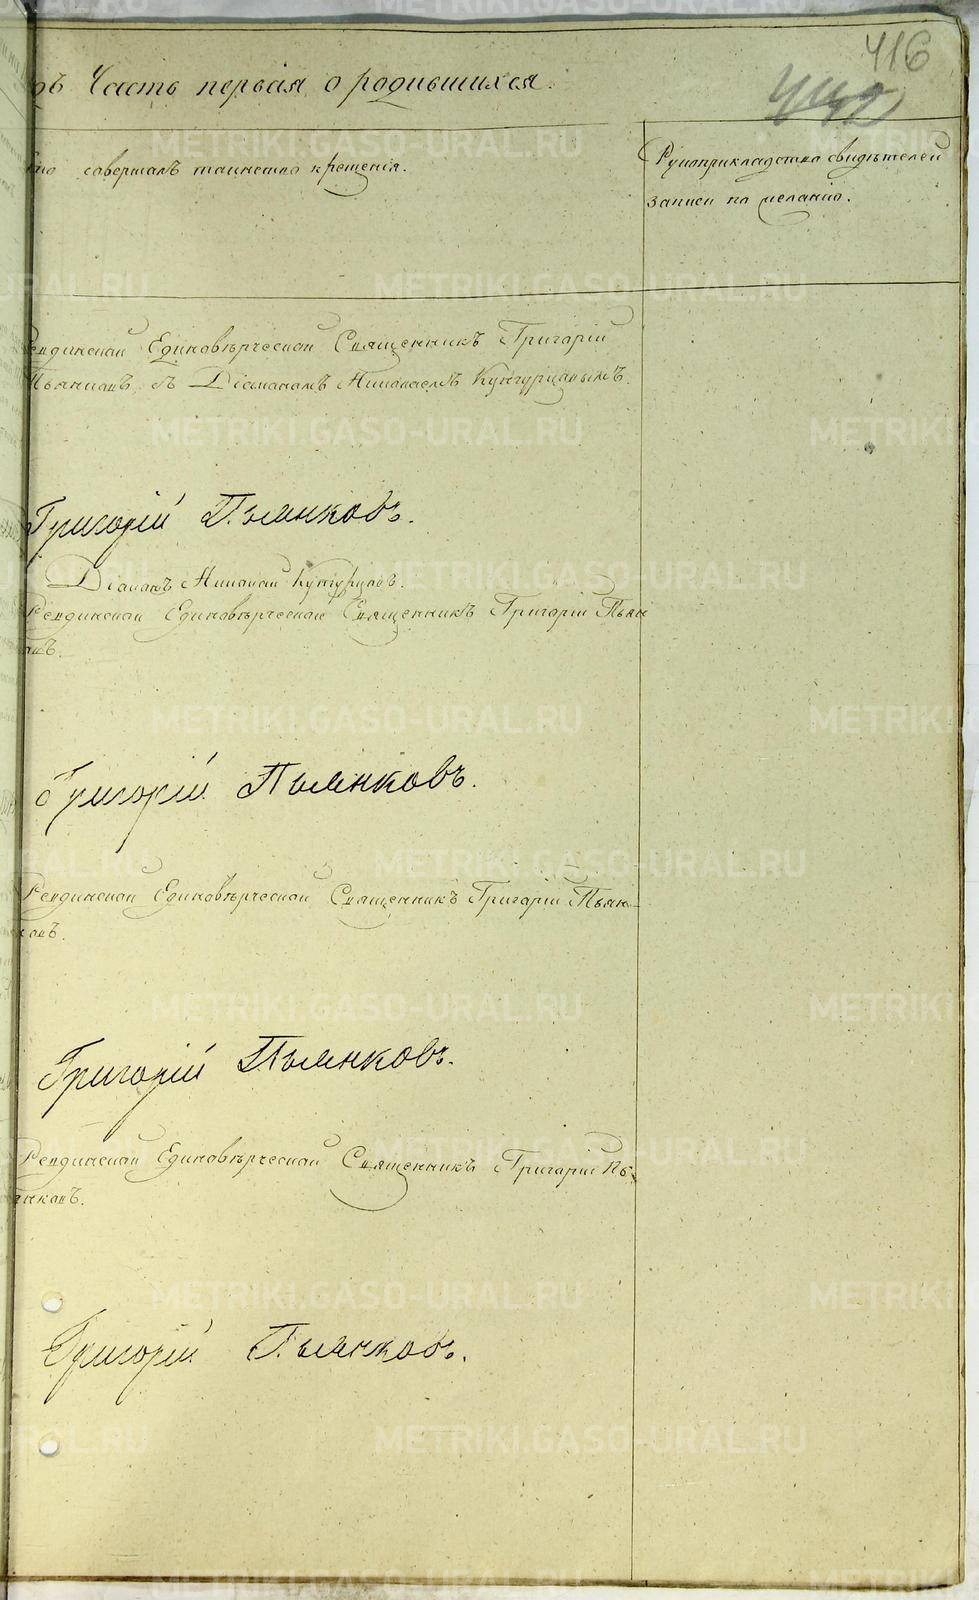 416
442
Часть первая о родившихся.
совершалъ таинство крещенія.
Рукоприкладство свидѣтелей
записи по желанію.
Ревдинской Единовѣрческой Священникъ Григорій
Пьянковъ съ Діакономъ Николаемъ Кунгурцовымъ.
Григорій Пьянковъ.
Діаконъ Николай Кунгурцовъ.
Ревдинской Единовѣрческой Священникъ Григорій Пьян
ковъ.
Григорій Пьянковъ.
Ревдинской Единовѣрческой Священникъ Григорій Пьян-
ковъ.
Григорій Пьянковъ.
Ревдинской Единовѣрческой Священникъ Григорій Пь-
янковъ.
Григорій Пьянковъ.
METRIKI.GASO-URAL.RU